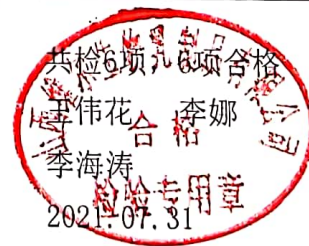 共检6项，6项合格
王伟花 李娜
李海涛
2021.07.31
合格
检验专用章